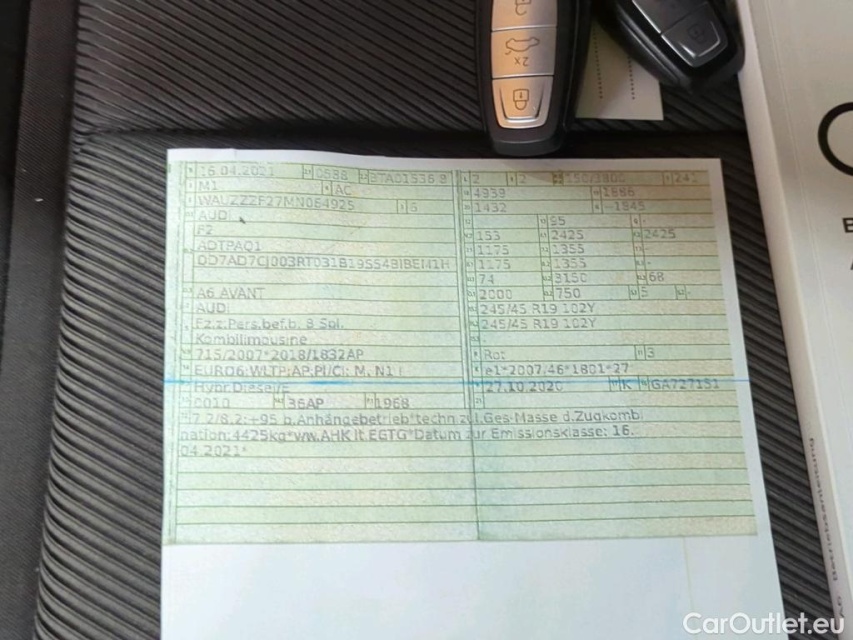 2x
16.04.2021 0588 BTA01536 8 2 2 150/3800 241
M1 AC 4939 1886
WAUZZZF27MN064925 6 1432 -1845
AUDI - 95 -
F2 153 2425 2425
AOTPAQ1 1175 1355 -
1175 1355 -
74 3150 68
A6 AVANT 2000 750 5 -
AUDI 245/45 R19 102Y
Fz.z.Pers.bef.b. 8 Spl. 245/45 R19 102Y
Kombilimousine
715/2007*2018/1832AP Rot 3
EURO6;WLTP;AP;PI/CI; M, N1 I e1*2007/46*1801*27
Hybr.Diesel/E 27.10.2020 K GA727151
0010 36AP 1968
*7.2/8.2:+95 b.Anhängebetrieb*techn.zul.Ges-Masse d.Zugkombi
nation:4425kg*vw.AHK lt.EGTG*Datum zur Emissionsklasse: 16.
04.2021*
CarOutlet.eu